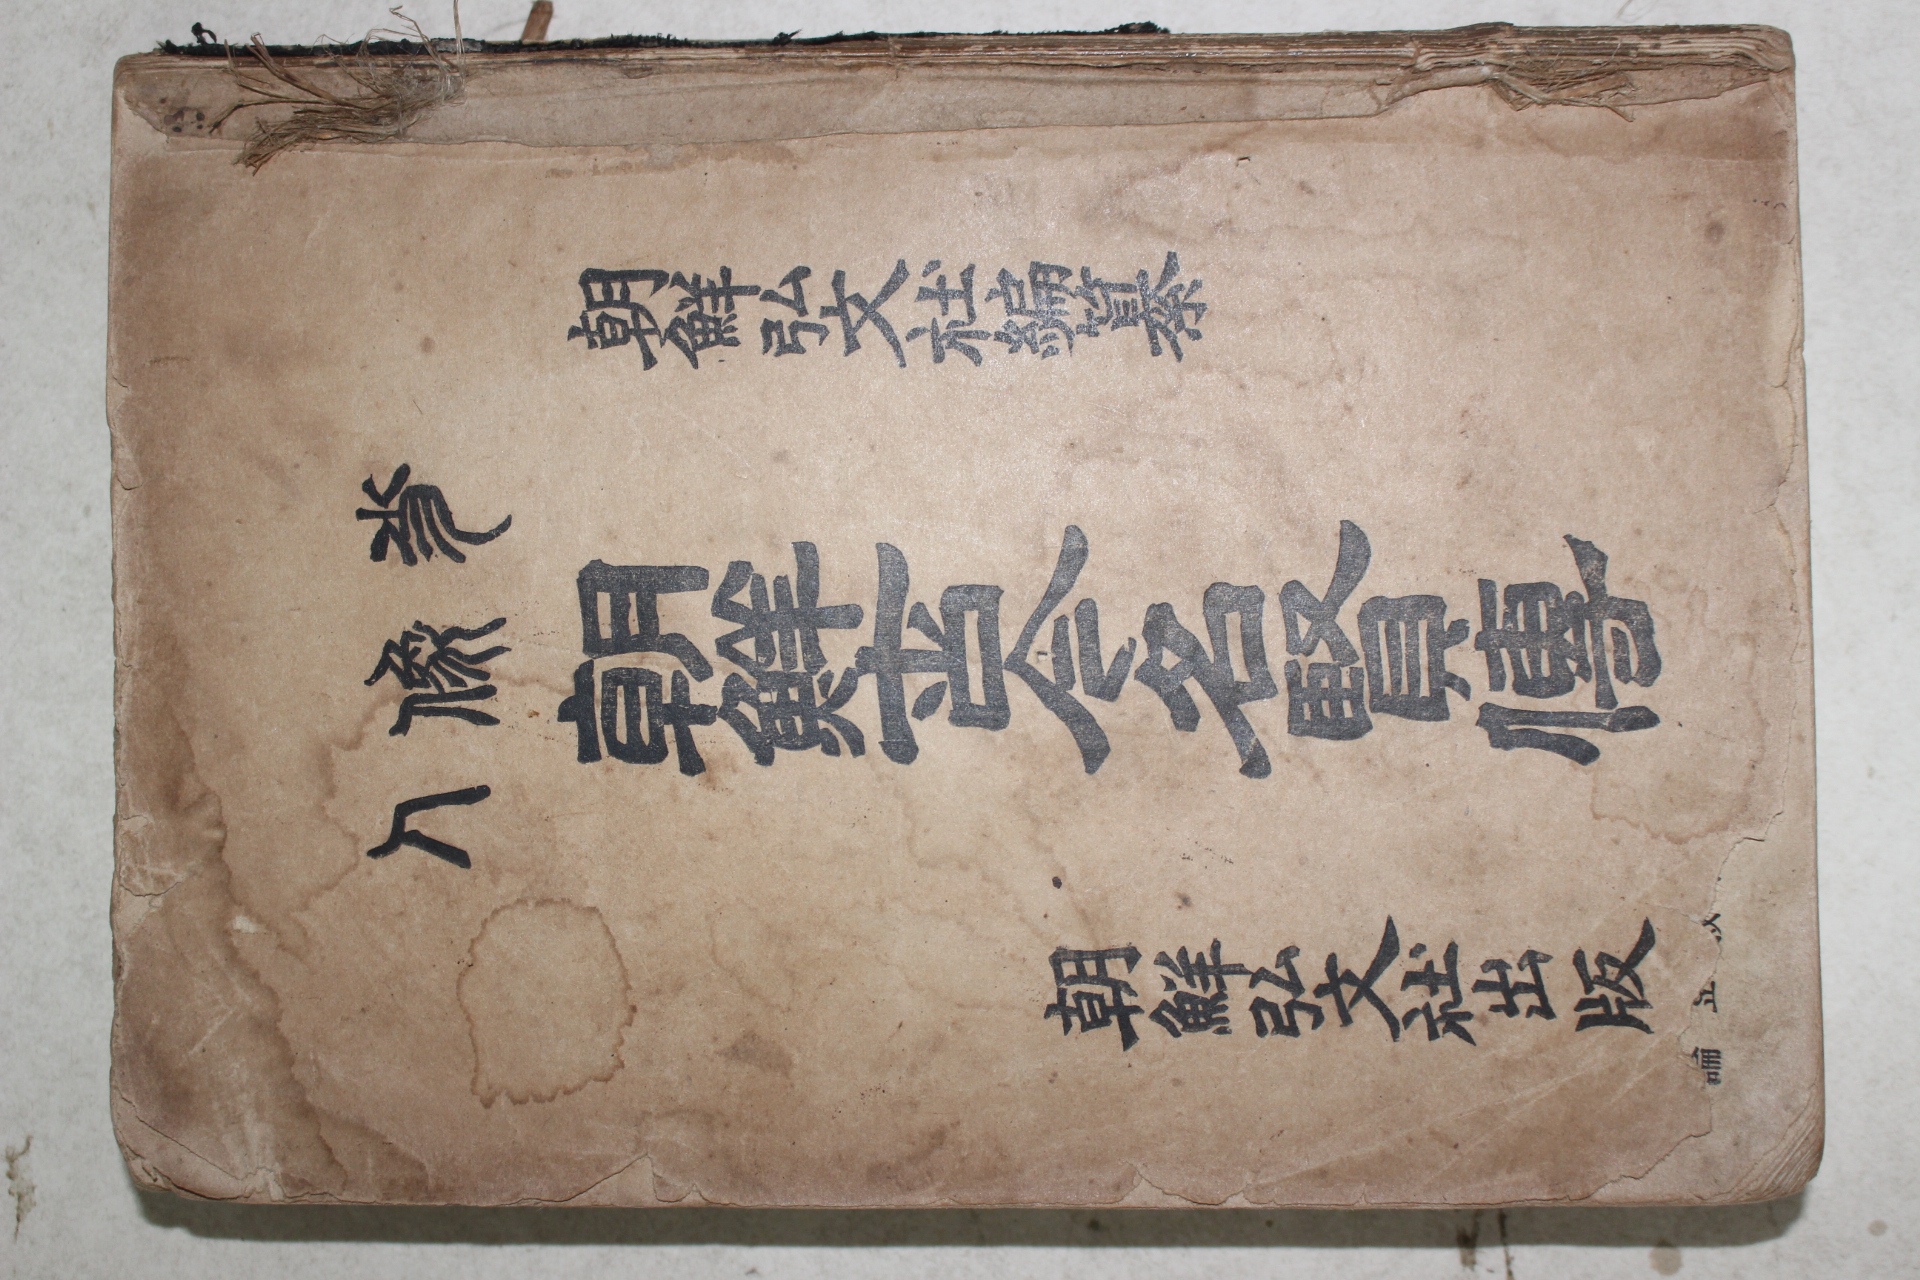 肖像入
朝鮮弘文社編纂
朝鮮古今名賢傳
朝鮮弘文社出版